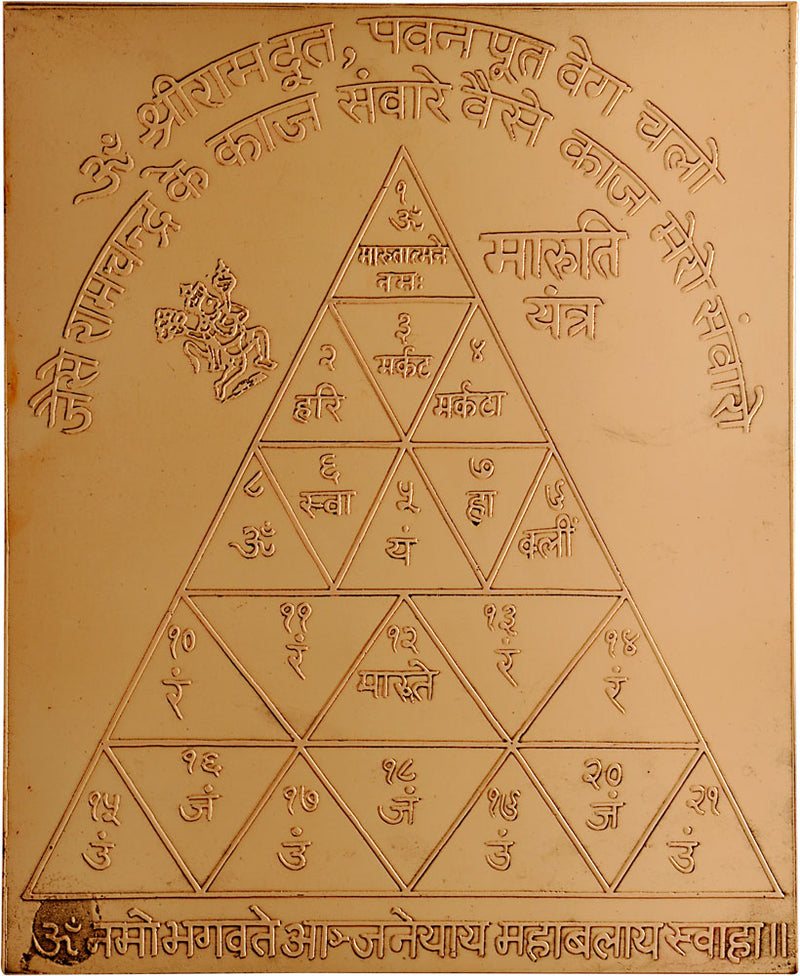 ॐ श्रीरामदूत, पवनपूत वेग चलो
जैसे रामचन्द्र के काज संवारे वैसे काज मेरो संवारो
मारुति
यंत्र
१
ॐ
मारुतात्मने
नमः
२
हरि
३
मर्कट
४
मर्कटा
८
ॐ
६
स्वा
५
यं
७
ह्रा
९
क्लीं
१०
रं
११
रं
१२
मारुते
१३
रं
१४
रं
१५
उं
१६
जं
१७
उं
१८
जं
१९
उं
२०
जं
२१
उं
ॐ नमो भगवते आञ्जनेयाय महाबलाय स्वाहा॥